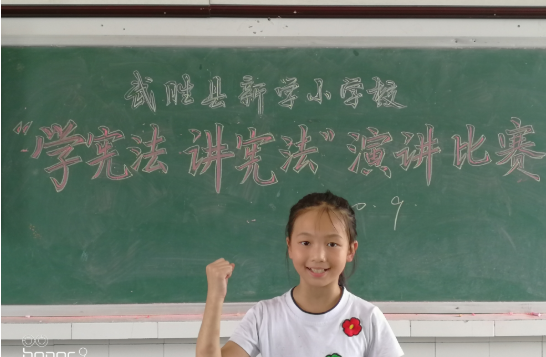 武胜县新学小学校
“学宪法 讲宪法”演讲比赛
0.9.
honor